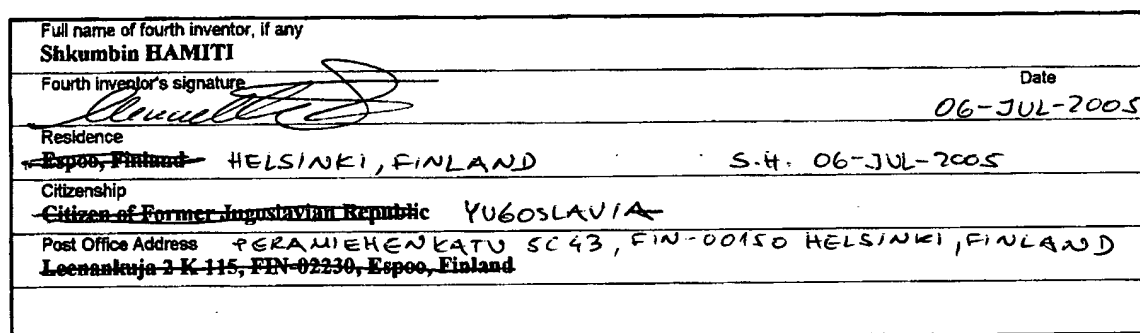 Full name of fourth inventor, if any
Shkumbin HAMITI
Fourth inventor's signature Date
06-JUL-2005
Residence
Espoo, Finland HELSINKI, FINLAND S.H. 06-JUL-2005
Citizenship
Citizen of Former Jugoslavian Republic YUGOSLAVIA
Post Office Address PERAMIEHENKATU 5C43, FIN-00150 HELSINKI, FINLAND
Leenankuja 2 K 115, FIN-02230, Espoo, Finland